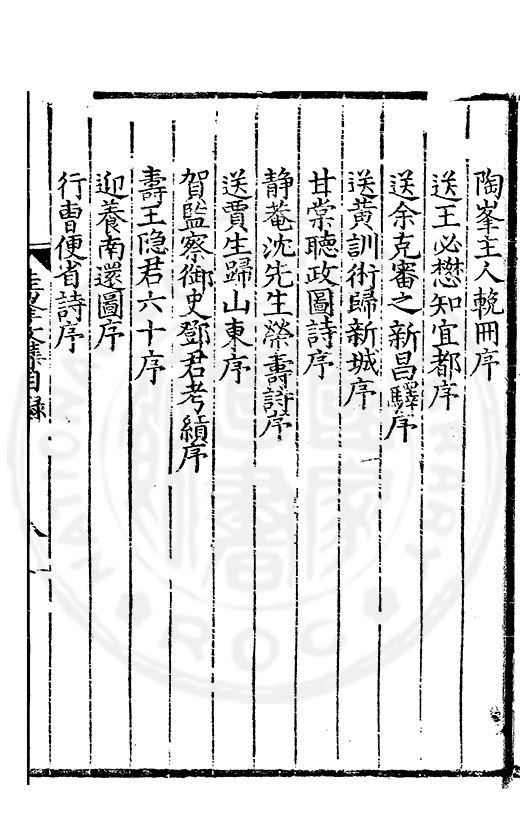 陶峯主人輓冊序
送王必懋知宜都序
送余克審之新昌驛序
送黃訓術歸新城序
甘棠聽政圖詩序
静菴沈先生榮壽詩序
送賈生歸山東序
賀監察御史鄧君考績序
壽王隐君六十序
迎養南還圖序
行曺便省詩序
文集目録
八